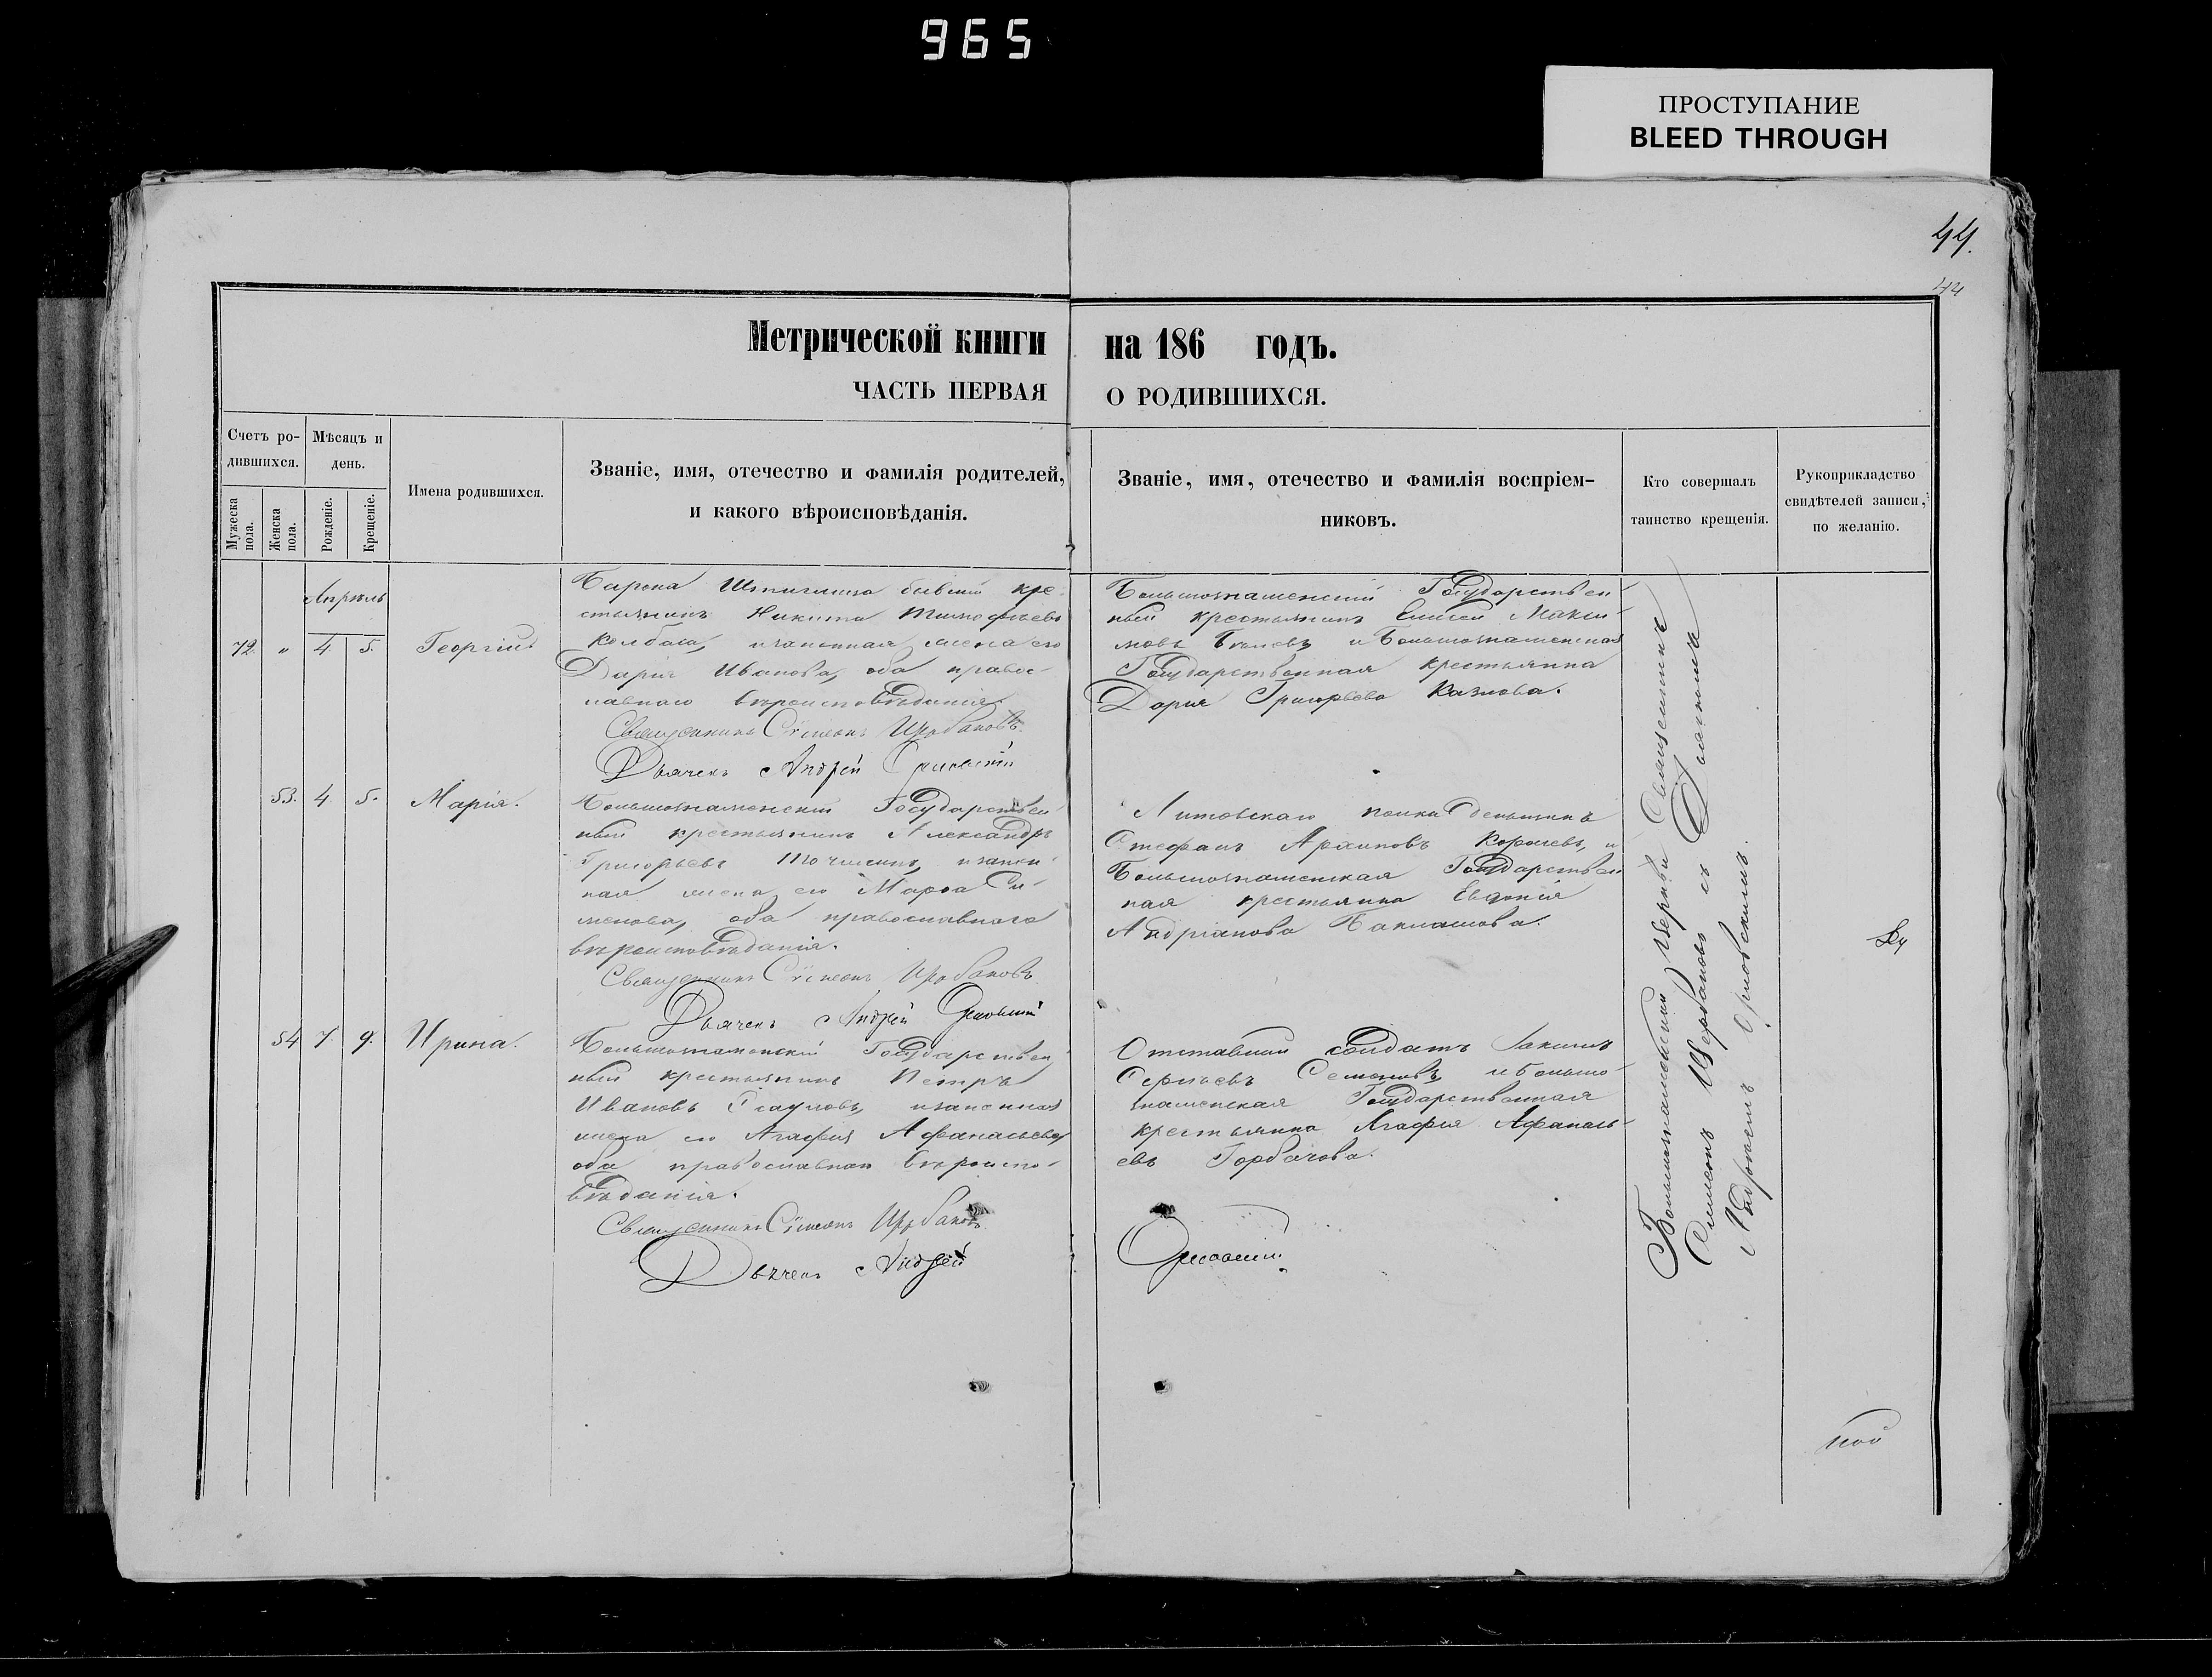 965
ПРОСТУПАНИЕ
BLEED THROUGH
44.
44
Метрической книги на 186 годъ.
ЧАСТЬ ПЕРВАЯ О РОДИВШИХСЯ.
Счетъ ро-
дившихся.
Мужеска
пола.
Женска
пола.
Мѣсяцъ и
день.
Рожденіе.
Крещеніе.
Имена родившихся.
Званіе, имя, отечество и фамилія родителей,
и какого вѣроисповѣданія.
Званіе, имя, отечество и фамилія воспріем-
никовъ.
Кто совершалъ
таинство крещенія.
Рукоприкладство
свидѣтелей записи,
по желанію.
Апрѣль
72. " 4 5. Георгій
Барона бывшій кре-
стьянинъ Никита Тимофѣевъ
Колбаса, изаконная жена его
Дарія Иванова, оба правос-
лавнаго вѣроисповѣданія.
Священникъ Сѵмеонъ Щербаковъ.
Дьячекъ Андрей Орловскій
Большознаменскій Государствен-
ный крестьянинъ Елисей Макси-
мовъ и Большознаменская
Государственная крестьянка
Дарья Григорьева Казлова.
53. 4 5. Марія.
Большознаменскій Государствен-
ный крестьянинъ Александръ
Григорьевъ изакон-
ная жена его Марѳа Си-
менова, оба православнаго
вѣроисповѣданія.
Священникъ Сѵмеонъ Щербаковъ
Дьячекъ Андрей Орловскій
Литовскаго полка деньщикъ
Стефанъ Архиповъ Королевъ, и
Большознаменская Государствен
ная крестьянка Евдокія
Андріанова Баклашова.
54 7. 9. Ирина.
Большознаменскій Государствен
ный крестьянинъ Петръ
Ивановъ изаконная
жена его Агафія Афанасьева
оба православнаго вѣроиспо-
вѣданія.
Священникъ Сѵмеонъ Щербаковъ
Дьячекъ Андрей Орловскій
Отставный солдатъ Іакимъ
Сергѣевъ Семеновъ, иБольшо-
знаменская Государственная
крестьянка Агафья Афанась-
евъ Горбачова.
Большознаменской Церкви Священникъ
Симеонъ Щербаковъ съ Дьячкомъ
Андреемъ Орловскимъ.